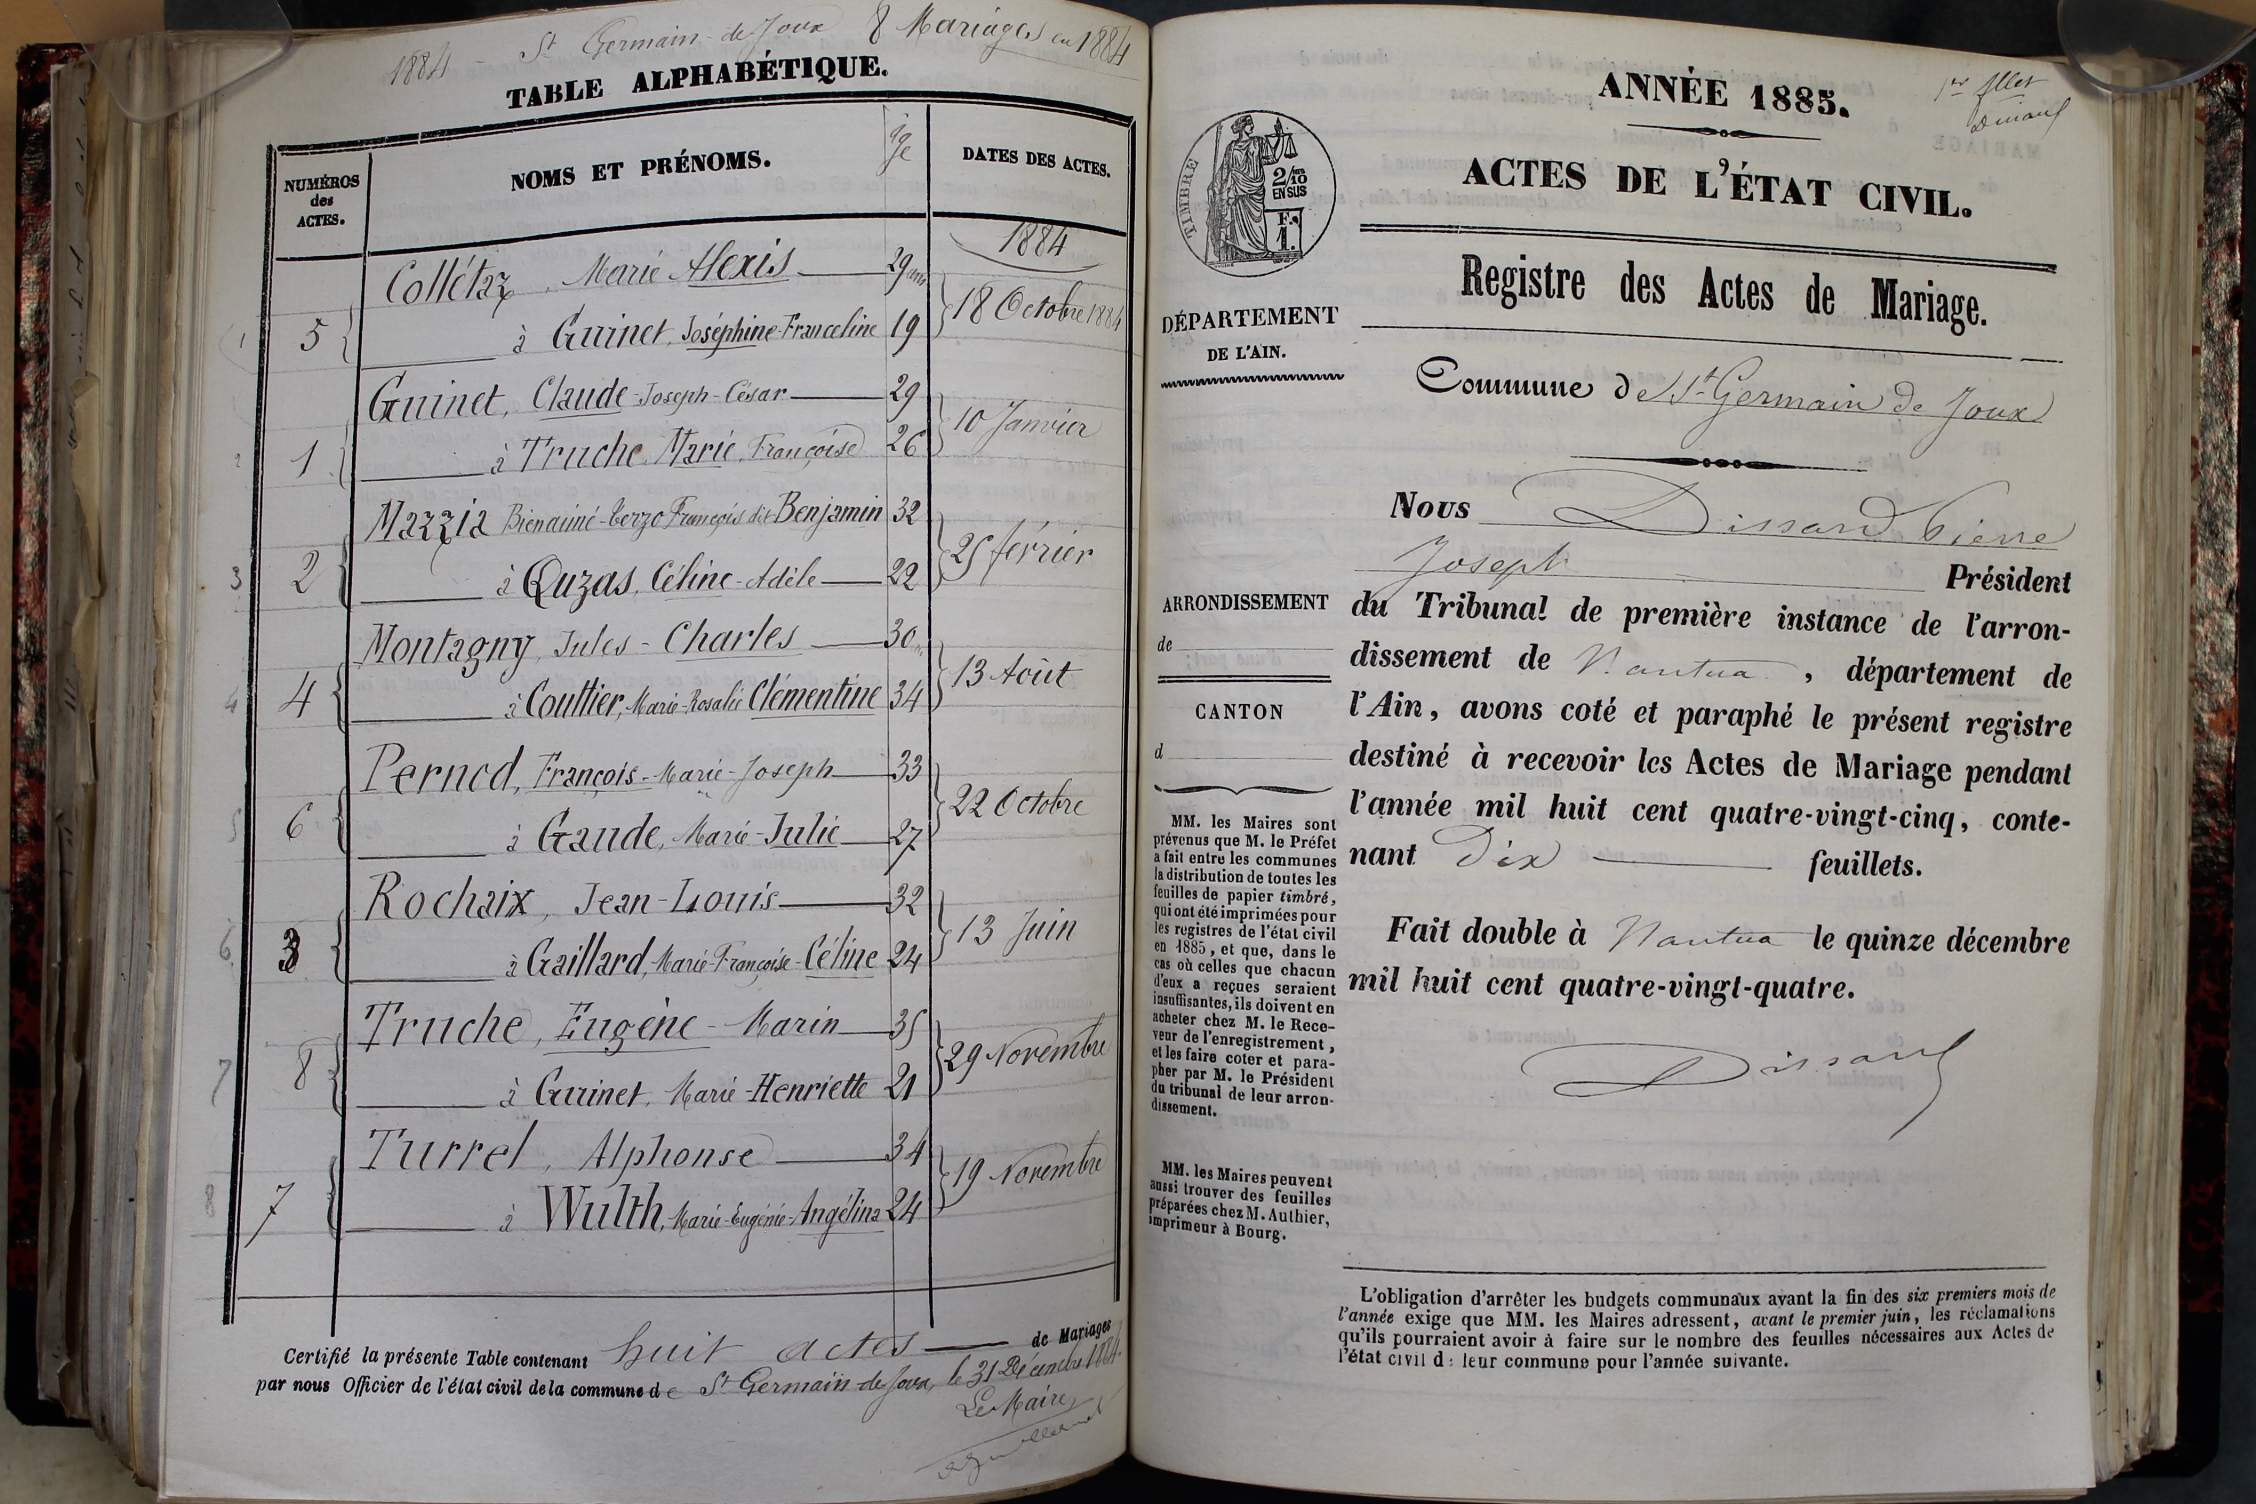 1884 - St Germain-de-Joux 8 Mariages en 1884
TABLE ALPHABÉTIQUE.
NUMÉROS des ACTES.
NOMS ET PRÉNOMS.
âge
DATES DES ACTES.
1884
Collétaz, Marie Alexis 29 ans
1 5 à Guinet, Joséphine-Franceline 19 18 Octobre 1884
Guinet, Claude-Joseph-César 29
2 1 à Truche, Marie, Françoise 26 10 Janvier
Mazzia Bienaimé-Terzo François dit Benjamin 32
3 2 à Quzas, Céline-Adèle 22 25 février
Montagny, Jules-Charles 30
4 4 à Couttier, Marie-Rosalie Clémentine 34 13 Août
Pernod, François-Marie-Joseph 33
5 6 à Gaude, Marie-Julie 27 22 Octobre
Rochaix, Jean-Louis 32
6 3 à Gaillard, Marie-Françoise-Céline 24 13 Juin
Truche, Eugène-Marin 35
7 8 à Guinet, Marie-Henriette 21 29 Novembre
Turrel, Alphonse 34
8 7 à Wulth, Marie-Eugénie-Angélina 24 19 Novembre
Certifié la présente Table contenant huit actes de Mariages
par nous Officier de l'état civil de la commune de St Germain-de-Joux, le 31 Décembre 1884.
Le Maire,
1er fllet
ANNÉE 1885.
ACTES DE L'ÉTAT CIVIL.
TIMBRE
2/10 EN SUS
F. 1.
Registre des Actes de Mariage.
DÉPARTEMENT
DE L'AIN.
Commune de St-Germain de Joux
Nous Dissard Pierre
Joseph Président
du Tribunal de première instance de l'arron-
dissement de Nantua, département de
l'Ain, avons coté et paraphé le présent registre
destiné à recevoir les Actes de Mariage pendant
l'année mil huit cent quatre-vingt-cinq, conte-
nant dix feuillets.
Fait double à Nantua le quinze décembre
mil huit cent quatre-vingt-quatre.
Dissard
ARRONDISSEMENT
de
CANTON
d
MM. les Maires sont
prévenus que M. le Préfet
a fait entre les communes
la distribution de toutes les
feuilles de papier timbré,
qui ont été imprimées pour
les registres de l'état civil
en 1885, et que, dans le
cas où celles que chacun
d'eux a reçues seraient
insuffisantes, ils doivent en
acheter chez M. le Rece-
veur de l'enregistrement,
et les faire coter et para-
pher par M. le Président
du tribunal de leur arron-
dissement.
MM. les Maires peuvent
aussi trouver des feuilles
préparées chez M. Authier,
imprimeur à Bourg.
L'obligation d'arrêter les budgets communaux avant la fin des six premiers mois de
l'année exige que MM. les Maires adressent, avant le premier juin, les réclamations
qu'ils pourraient avoir à faire sur le nombre des feuilles nécessaires aux Actes de
l'état civil d: leur commune pour l'année suivante.